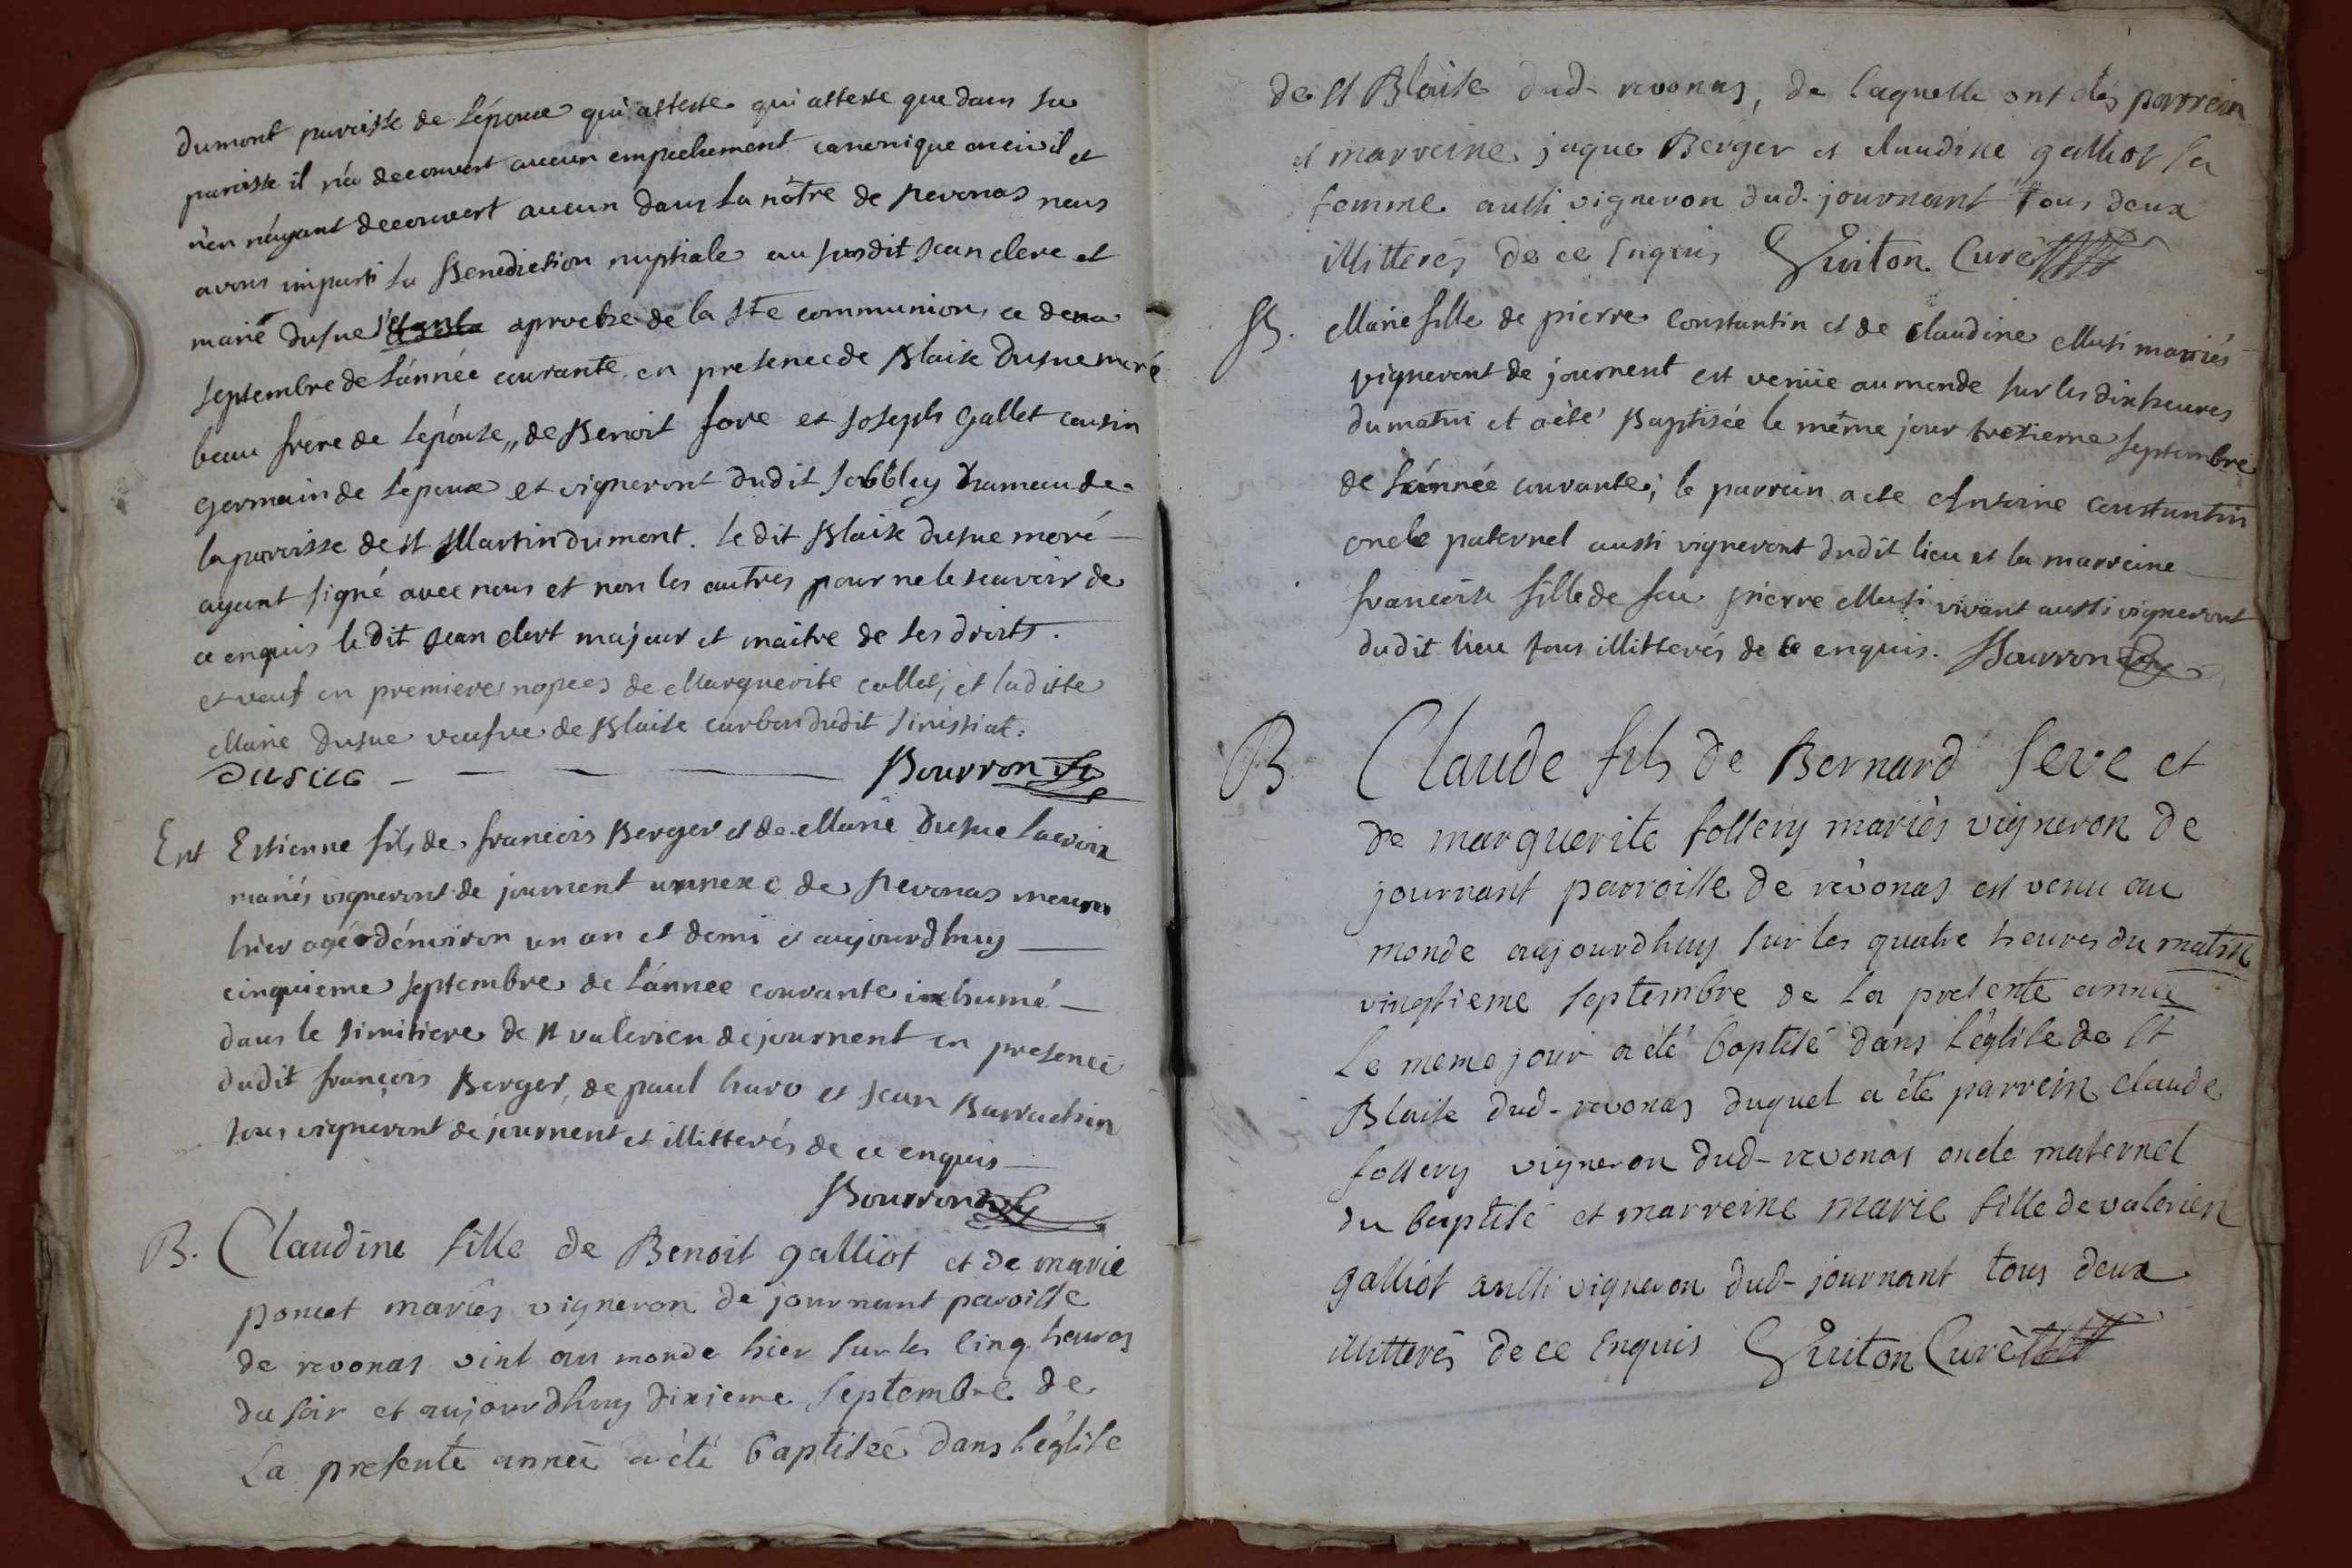 dumont paroisse de l'épouxe qui atteste qui atteste que dans sa
paroisse il n'a decouvert aucun empechement canonique oncivil et
n'en n'áyant decouvert aucun dans la nôtre de revonas nous
avons imparti la Benediction nuptiale au susdit jean clere et
marie dusue aprochè de la ste communion, ce deux
septembre de l'ánnée courante en presence de Blaise dusue moré
beau frere de l'épouse,, de Benoit fove et joseph gallet cousin
germain de l'epoux et vigneront dudit hameau de
la paroisse de st Martin dumont. le dit Blaise dusue moré
ayant signé avec nous et non les autres pour ne le scavoir de
ce enquis le dit jean clert majeur et maitre de ses droits.
et veuf en premieres nopces de Marguerite collet, et laditte
Marie dusue veufve de Blaise carbon dudit sinissiat.
dusuc Bourron
Ent Estienne fils de francois Berger et de Marie dusue lacroix
mariés vigneront de journent annexe de revonas mourut
hier agé d'énviron un an et demi et aujourdhuy
cinquieme septembre de l'ánnee courante inhumé
dans le simitiere de st valerien de journent en presence
dudit françois Berger, de paul huro et jean Barrachin
tous vigneront de journent et illitterés de ce enquis
Bourron
B. Claudine fille de Benoit galliot et de marie
poncet mariés vigneron de journant paroisse
de revonas vint au monde hier sur les cinq heures
du soir et aujourdhuy dixieme septembre de
la presente année a été baptisée dans l'église
de st Blaise dud- revonas, de laquelle ont étés parrein
et marreine jaque Berger et claudine galliot sa
femme aussi vigneron dud. journant tous deux
illitterés de ce enquis Guiton Curé
B. Marie fille de pierre constantin et de claudine Musi mariés
vigneront de journent est venüe au monde sur les dix heures
du matin et a été Baptisée le même jour tresieme septembre
de l'ánnée courante; le parrein a ete Antoine constantin
oncle paternel aussi vigneront dudit lieu et la marreine
francoise fille de feu pierre Musi vivant aussi vigneront
dudit lieu tous illitterés de ce enquis. Bourron
B Claude fils de Bernard seve et
de marguerite follery mariés vigneron de
journant parroisse de révonas est venu au
monde aujourdhuy sur les quatre heures du matin
vingtieme septembre de la presente année
Le meme jour a été baptisé dans l'église de st
Blaise dud- revonas duquel a été parrein claude
follery vigneron dud- revonas oncle maternel
du baptisé et marreine marie fille de valerien
galliot aussi vigneron dud- journant tous deux
illitterés de ce enquis Guiton Curé